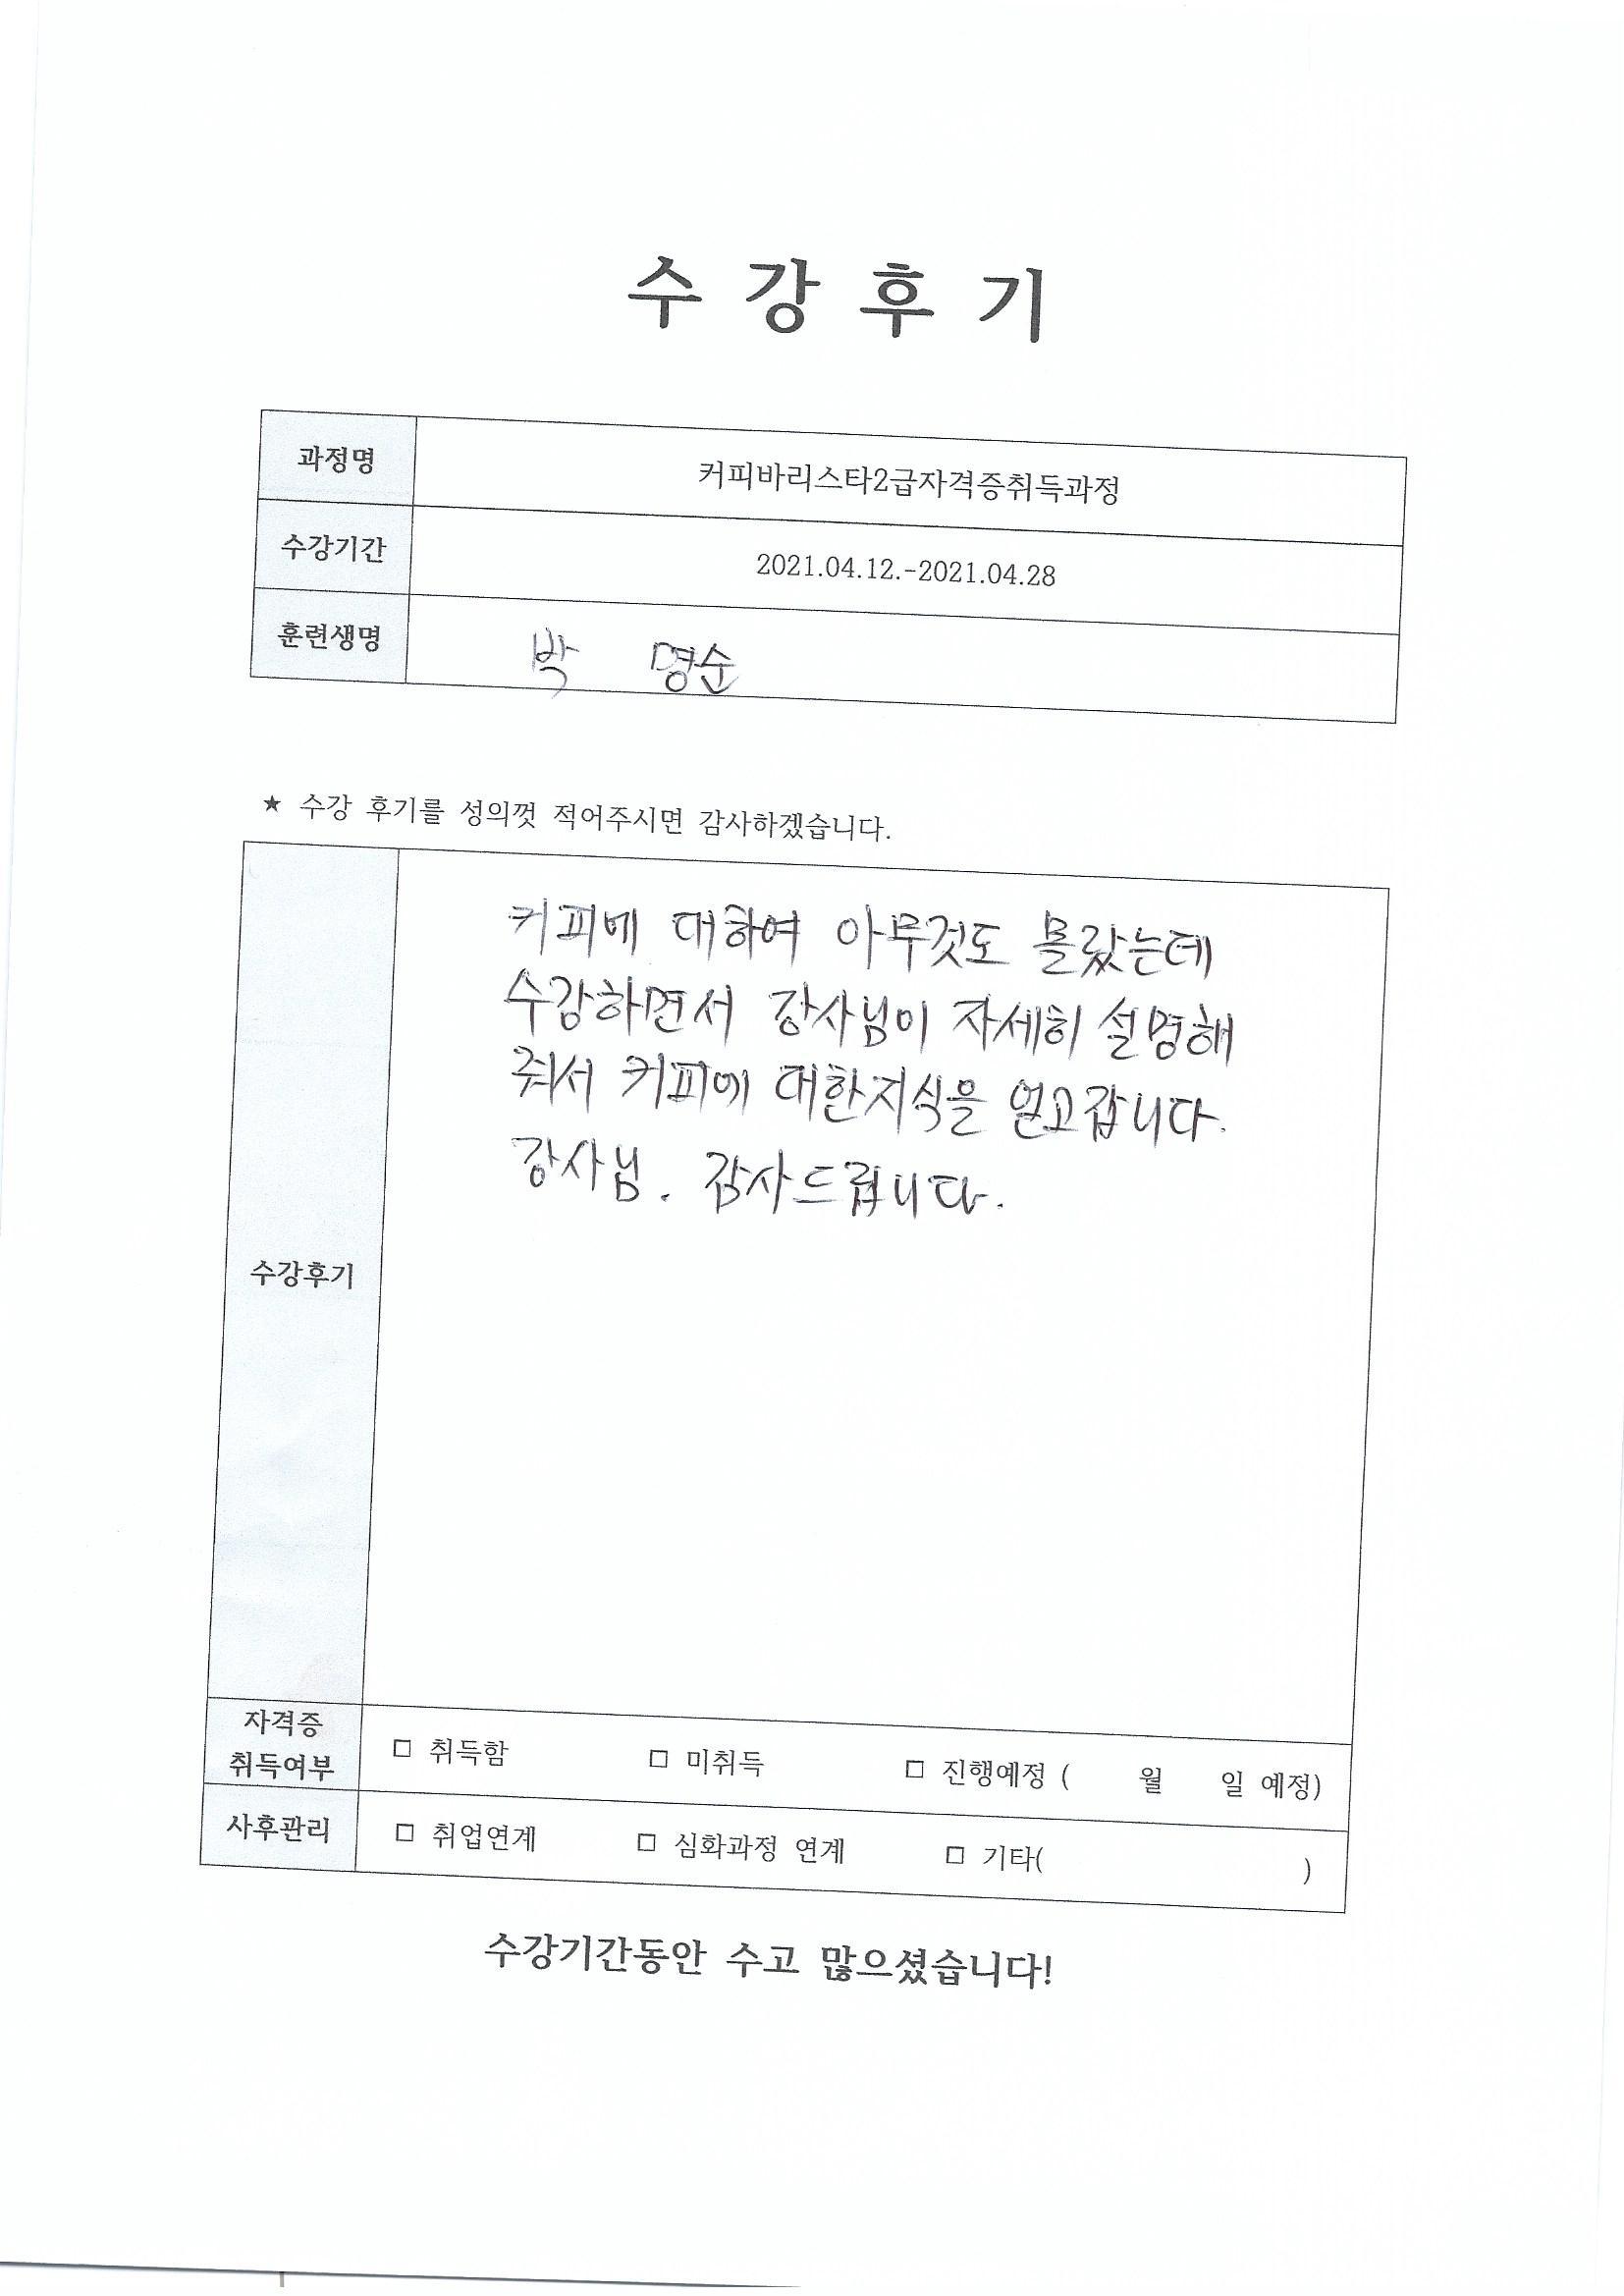 수 강 후 기
과정명 커피바리스타2급자격증취득과정
수강기간 2021.04.12.-2021.04.28
훈련생명 박 명순
★ 수강 후기를 성의껏 적어주시면 감사하겠습니다.
커피에 대하여 아무것도 몰랐는데
수강하면서 강사님이 자세히 설명해
줘서 커피에 대한지식을 얻고갑니다.
강사님. 감사드립니다.
수강후기
자격증
취득여부 □ 취득함 □ 미취득 □ 진행예정 ( 월 일 예정)
사후관리 □ 취업연계 □ 심화과정 연계 □ 기타( )
수강기간동안 수고 많으셨습니다!